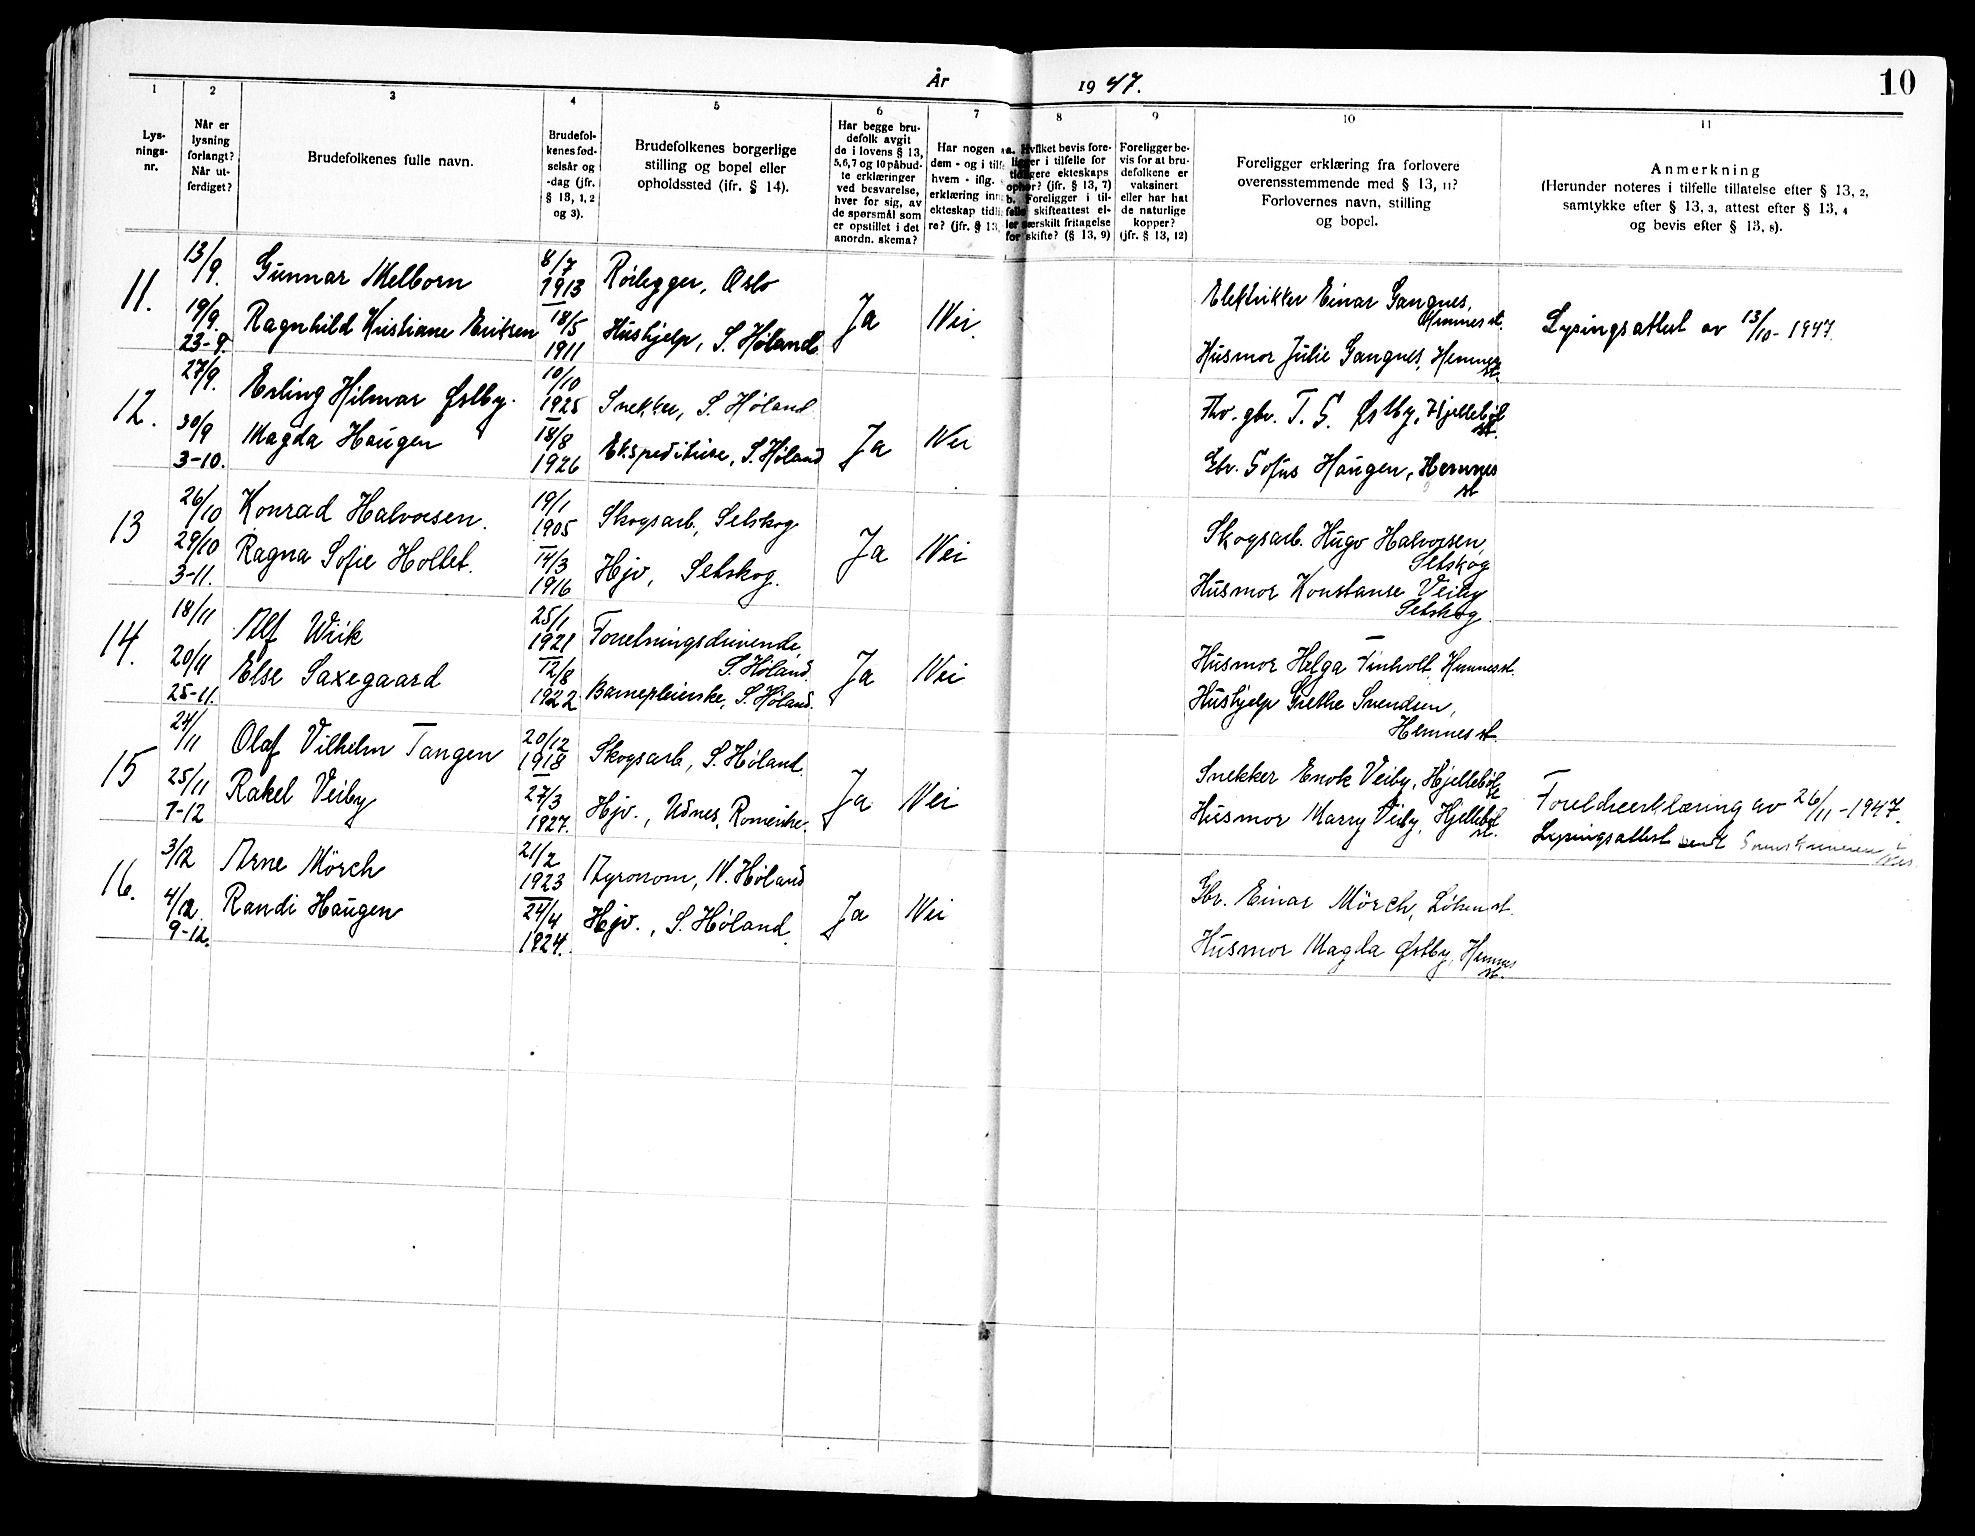 År 1947.
10
1
2
3
4
5
6
7
8
9
10
11
Lys-
nings-
nr.
Når er
lysning
forlangt?
Når ut-
ferdiget?
Brudefolkenes fulle navn.
Brudefol-
kenes fød-
selsår og
-dag (jfr.
§ 13, 1, 2
og 3).
Brudefolkenes borgerlige
stilling og bopel eller
opholdssted (ifr. § 14).
Har begge bru-
defolk avgit
de i lovens § 13,
5,6,7 og 10 påbud-
te erklæringer
ved besvarelse,
hver for sig, av
de spørsmål som
er opstillet i det
anordn. skema?
Har nogen a
dem - og i tilf
hvem - iflg.
erklæring inn
ekteskap tidli
re? (jfr. § 13,
a. Hvilket bevis fore-
ligger i tilfelle for
tidligere ekteskaps
ophør? (jfr. § 13, 7)
b. Foreligger i til-
felle skifteattest el-
ler særskilt fritagelse
for skifte? (§ 13, 9)
Foreligger be-
vis for at bru-
defolkene er
vaksinert
eller har hat
de naturlige
kopper?
(jfr. § 13, 12)
Foreligger erklæring fra forlovere
overensstemmende med § 13, 11?
Forlovernes navn, stilling
og bopel.
Anmerkning
(Herunder noteres i tilfelle tillatelse efter § 13, 2,
samtykke efter § 13, 3, attest efter § 13, 4
og bevis efter § 13, 8).
11.
13/9.
19/9.
23-9.
Gunnar Melborn
Ragnhild Kristiane Eriksen
8/7
1913
18/5
1911
Rörlegger, Oslo
Hushjelp, S. Höland
Ja
Nei.
Elektriker Einar Gangnes,
Hemnes st.
Husmor Julie Gangnes, Hemnes
st.
Lysingsattest av 13/10-1947.
12.
27/9.
30/9
3-10.
Erling Hilmar Østby.
Magda Haugen
10/10
1925
18/8
1926
Snekker, S. Höland
Ekspeditrise, S. Höland
Ja
Nei
Fhv. gbr. T. S. Østby, Hjellebøl
st.
Gbr. Sofus Haugen, Hemnes
st
13
26/10
29/10
3-11.
Konrad Halvorsen.
Ragna Sofie Holtet.
19/1
1905
14/3
1916
Skogsarb, Setskog
Hjv, Setskog.
Ja
Nei
Skogsarb. Hugo Halvorsen,
Setskog
Husmor Konstanse Veiby
Setskog.
14.
18/11
20/11
25-11.
Alf Wiik
Else Saxegaard
25/1
1921
12/8
1922
Forretningsdrivende,
S. Höland.
Barnepleierske, S. Höland.
Ja
Nei
Husmor Helga Finholt, Hemnes st.
Hushjelp Grethe Svendsen,
Hemnes st.
15
24/11
25/11
1-12
Olaf Vilhelm Tangen
Rakel Veiby
20/12
1918
27/3
1927.
Skogsarb, S. Höland.
Hjv., Udnes, Romerike.
Ja
Nei
Snekker Enok Veiby, Hjellebøl
st
Husmor Marry Veiby, Hjellebøl
st.
Foreldreerklæring av 26/11-1947.
Lysingsattest sendt
16.
3/12
4/12.
9-12.
Arne Mörch
Randi Haugen
21/2
1923
24/4
1924.
Agronom, N. Höland
Hjv., S. Höland.
Ja
Nei
Gbr. Einar Mörch, Löken st.
Husmor Magda Østby, Hemnes
st.